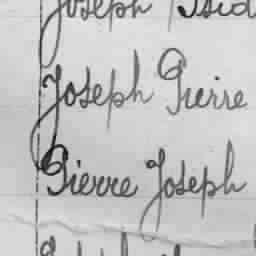 Joseph Isid
Joseph Pierre
Pierre Joseph